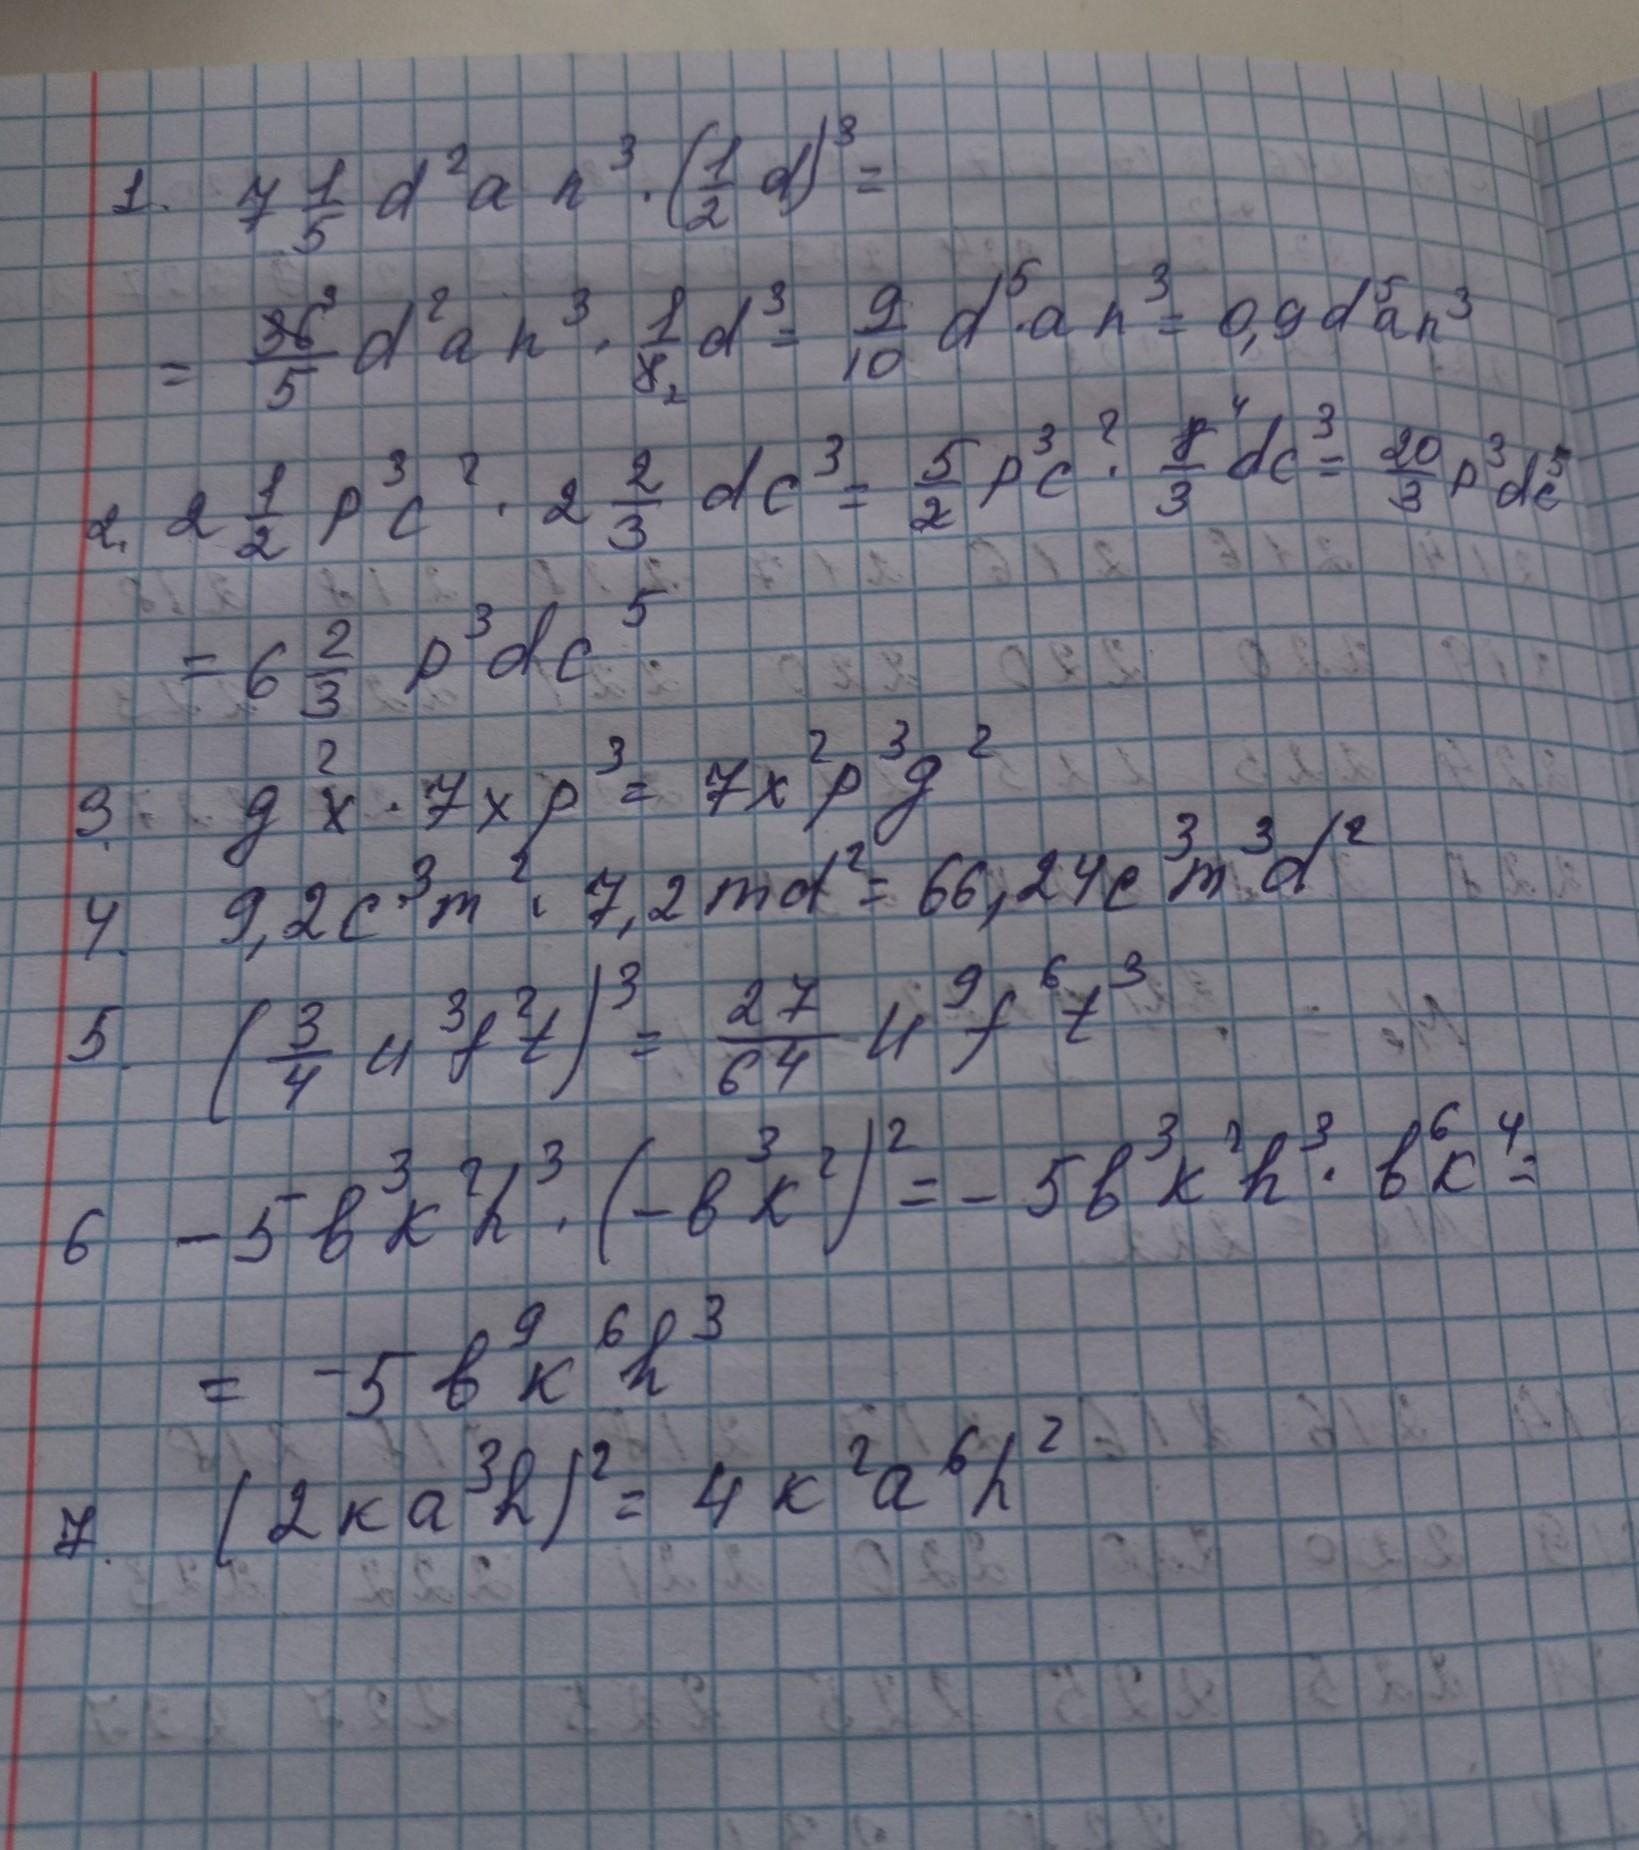 1. 7 1/5 d²an³·(1/2 d)³=
= 36⁹/5 d²an³ · 1/8₂ d³= 9/10 d⁵·an³= 0,9d⁵an³
2. 2 1/2 p³c² · 2 2/3 dc³= 5/2 p³c² · 8⁴/3 dc³= 20/3 p³dc⁵
= 6 2/3 p³dc⁵
3. g²x · 7xp³= 7x²p³g²
4. 9,2c³m² · 7,2md²= 66,24c³m³d²
5. (3/4 u³f²t)³= 27/64 u⁹f⁶t³
6 -5b³k²h³ · (-bk³²)²= -5b³k²h³ · b⁶k⁴=
= -5b⁹k⁶h³
7. (2ka³h)²= 4k²a⁶h²